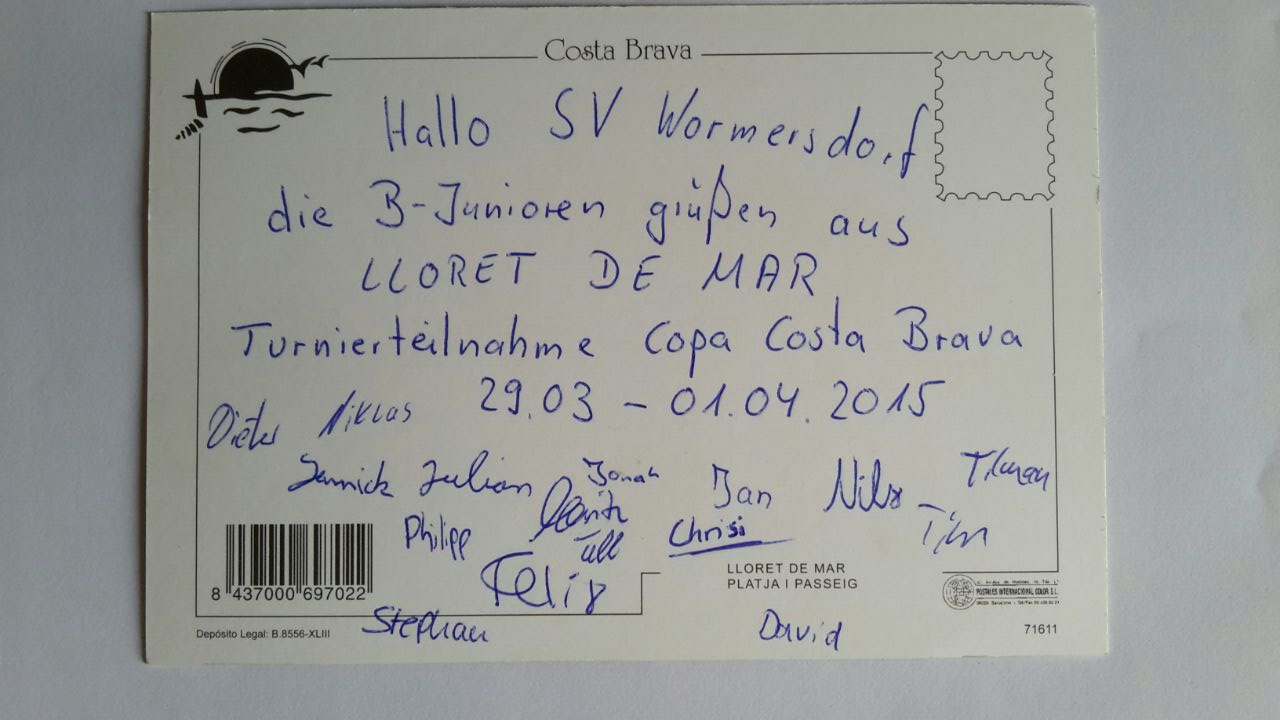 Costa Brava
Hallo SV Wormersdorf
die B-Junioren grüßen aus
LLORET DE MAR
Turnierteilnahme Copa Costa Brava
29.03 - 01.04.2015
Dieter Niklas
Jannick Julian Jonah Jan Nils Tilman
Philipp Moritz Till Chrisi Tim
Felix
Stephan David
LLORET DE MAR
PLATJA I PASSEIG
8 437000 697022
POSTALES INTERNACIONAL COLOR S.L.
Depósito Legal: B.8556-XLIII
71611